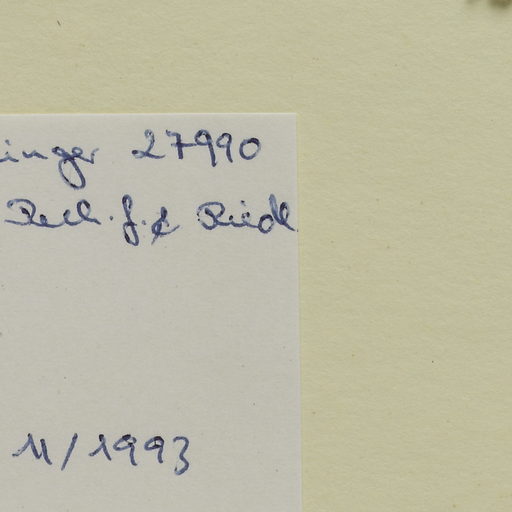 inger 27990
Rech. f. & Riedl
11/1993